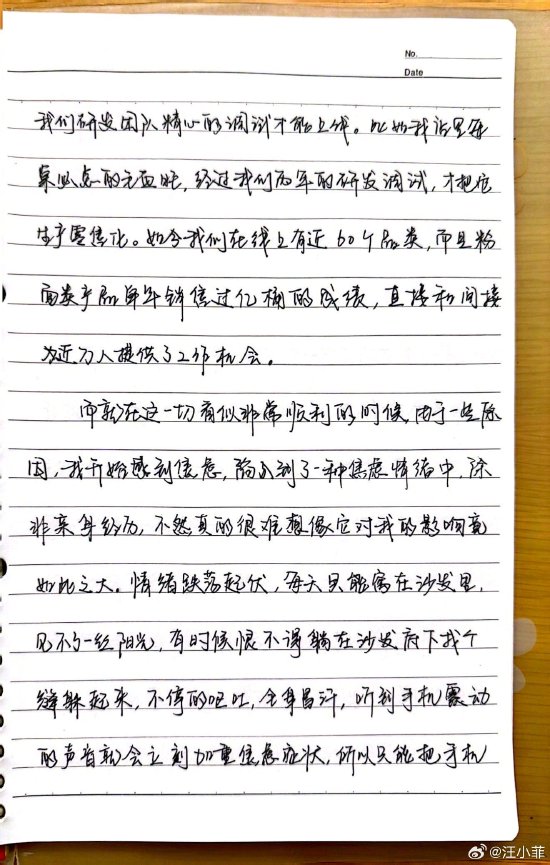 No.
Date
我们研发团队精心的调试才能上线。比如我店里每
桌必点的毛血旺，经过我们两年的研发调试，才把它
生产零售化。如今我们在线上有近60个品类，而且粉
面类产品单年销售过亿桶的成绩，直接和间接
为近万人提供了工作机会。
而就在这一切看似非常顺利的时候，由于一些原
因，我开始感到焦急，陷入到了一种焦虑情绪中，除
非亲身经历，不然真的很难想像它对我的影响竟
如此之大。情绪跌荡起伏，每天只能窝在沙发里，
见不了一丝阳光，有时候恨不得躺在沙发底下找个
缝躲起来，不停的呕吐，全身冒汗，听到手机震动
的声音就会立刻加重焦急症状，所以只能把手机
@汪小菲